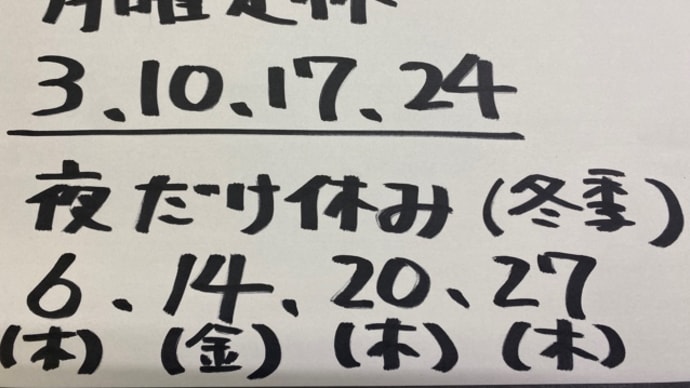 月曜定休
3、10、17、24
夜だけ休み(冬季)
6、14、20、27
(木) (金) (木) (木)